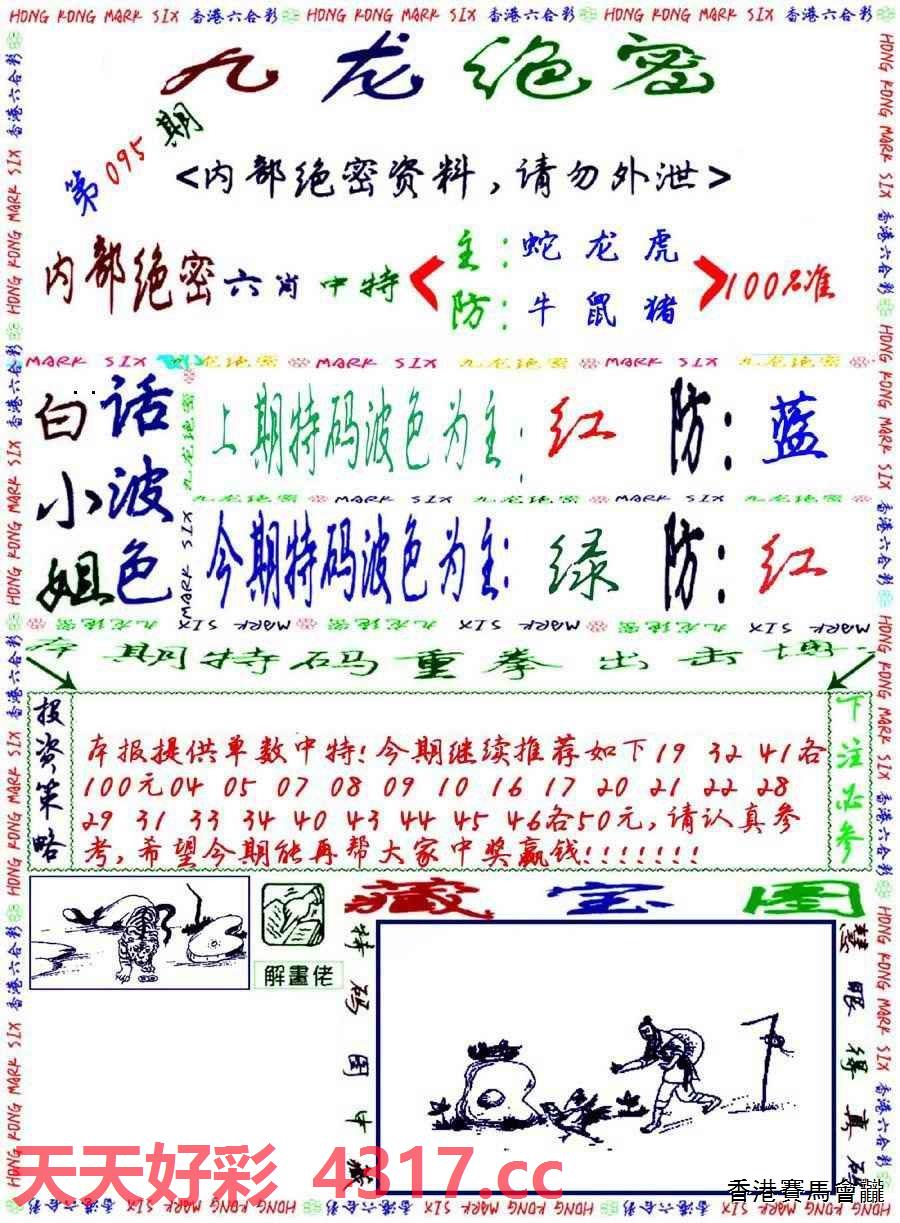 HONG KONG MARK SIX 香港六合彩 HONG KONG MARK SIX 香港六合彩 HONG KONG MARK SIX 香港六合彩
九龙绝密
第095期
<内部绝密资料,请勿外泄>
内部绝密六肖中特
主:蛇龙虎
防:牛鼠猪
100%准
MARK SIX 九龙绝密 MARK SIX 九龙绝密 MARK SIX 九龙绝密
白话
小波
姐色
上期特码波色为主:红 防:蓝
九龙绝密 MARK SIX 九龙绝密 MARK SIX 九龙绝密
今期特码波色为主:绿 防:红
九龙绝密 MARK SIX 九龙绝密 MARK SIX 九龙绝密 MARK SIX
本期特码重拳出击
投资策略
本报提供单数中特!今期继续推荐如下19 32 41各
100元04 05 07 08 09 10 16 17 20 21 22 28
29 31 33 34 40 43 44 45 46各50元,请认真参
考,希望今期能再帮大家中奖赢钱!!!!!!!
下注必参
藏宝图
解畫佬
特码图中
慧眼得真
天天好彩 4317.cc
香港賽馬會